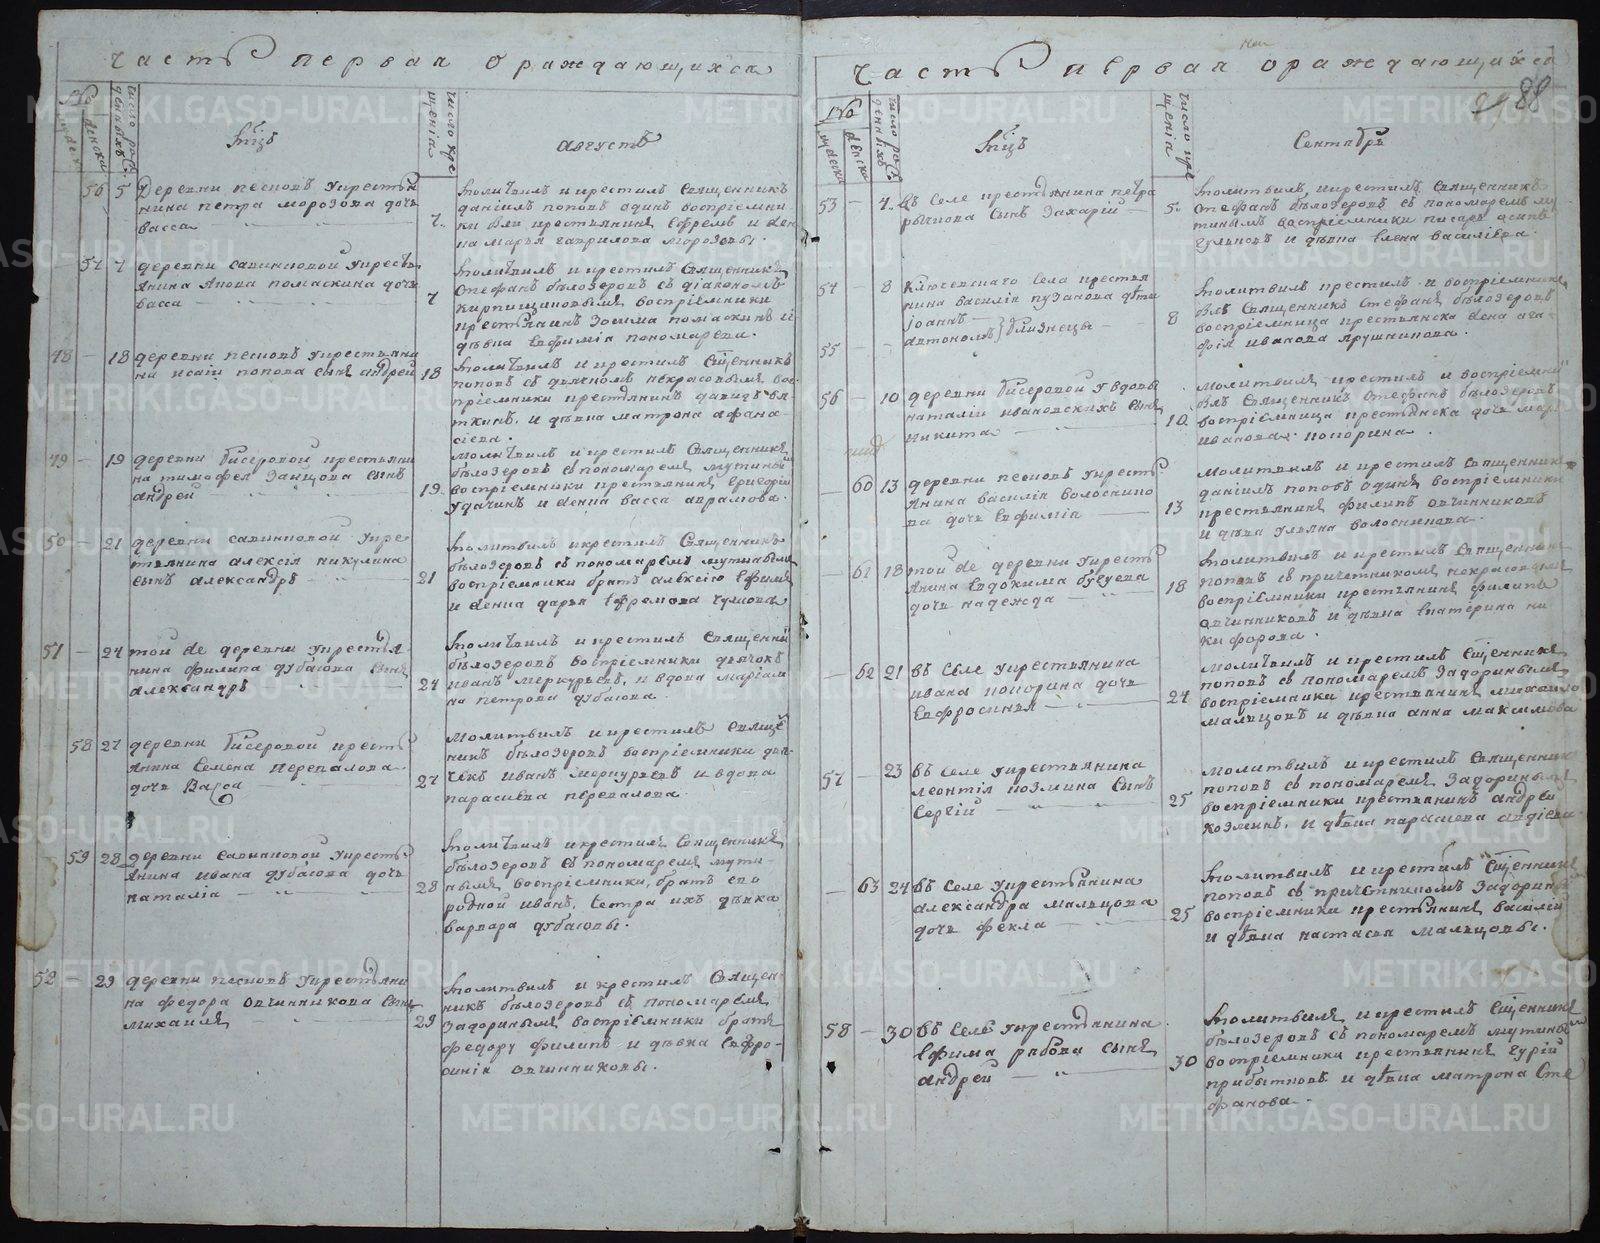 часть первая ораждающихся
№
число рож
денныхъ
число кре
щенія
мужеска
женска
Августъ
56 5 Деревни песковъ укрестья
нина петра морозова дочь
васса
7
молитвилъ и крестилъ Священникъ
даніилъ поповъ одинъ воспріемни
ки
на марья гаврилова морозовы.
57 7 деревни савиновой укресть
янина якова помаскина дочь
васса
7
молитвилъ и крестилъ Священникъ
Стефанъ бѣлозеровъ съ діакономъ
кирпищиковымъ воспріемники
крестьянинъ Зосима помаскинъ и
дѣвка Евфимія пономарева.
48 — 18 деревни песковъ укрестьяни
на исаіи попова сынъ андрей
18
молитвилъ и крестилъ Сщенникъ
поповъ съ дьячкомъ некрасовымъ вос
пріемники крестьянинъ давидъ вя
ткинъ. и дѣвка матрона афана
сіева.
49 — 19 деревни бисеровой крестьяни
на тимофея Зайцова сынъ
андрей
19
молитвилъ и крестилъ Священникъ
бѣлозеровъ съ пономаремъ мутинымъ
воспріемники крестьянинъ григорій
удачинъ и женка васса аврамова.
50 — 21 деревни савинновой укре
стьянина алексія никулина
сынъ александръ
21
молитвилъ икрестилъ Священникъ
бѣлозеровъ съ пономаремъ мутинымъ
воспріемники братъ алексію Ефимъ
и женка дарья Ефремова
51 — 24 той же деревни укрестья
нина филипа дубасова сынъ
александръ
24
молитвилъ и крестилъ Священни
бѣлозеровъ воспріемники дьячокъ
иванъ меркурьевъ, и вдова маріам
на петрова дубасова.
58 27 деревни бисеровой кресть
янина Семена Перепалова
дочь Васса
27
молитвилъ и крестилъ Свяще
никъ бѣлозеровъ воспріемники дья
чекъ иванъ меркурьевъ и вдова
парасцева перепалова.
59 28 деревни Савиновой укресть
янина ивана дубасова дочь
наталія
28
молитвилъ икрестилъ Священникъ
бѣлозеровъ съ пономаремъ мути
нымъ воспріемники, братъ его
родной иванъ, Сестра ихъ дѣвка
варвара дубасовы.
52 — 29 деревни песковъ укрестьяни
на федора овчинникова сынъ
михаилъ
29
молитвилъ и крестилъ Священ
никъ бѣлозеровъ съ пономаремъ
Задоринымъ воспріемники братъ
федору филипъ и дѣвка Евфро
синія овчинниковы.
часть первая ораждающихся
88
№
число рож
денныхъ
число кре
щенія
мужеска
женска
Сентябрь
53 — 4 въ селе крестьянина петра
рычкова сынъ Захарій
5
молитвилъ икрестилъ Священникъ
Стефанъ бѣлозеровъ съ пономаремъ му
тинымъ воспріемники писарь осипъ
и дѣвка Елена василіева.
54 — 8 Ключевскаго села крестья
нина василія пузанова дѣти
іоаннъ
55 — автономъ } близнецы
8
молитвилъ крестилъ и воспріемникъ
былъ Священникъ Стефанъ бѣлозеровъ
воспріемница крестьянска жена ага
фія иванова ярушникова.
56 — 10 деревни бисеровой у вдовы
наталіи ивановскихъ сынъ
никита
10
молитвилъ крестилъ и воспріемни
былъ Священникъ Стефанъ бѣлозеровъ
воспріемница крестьянска дочь марія
иванова Чопорина.
— 60 13 деревни песковъ укресть
янина василія волоснико
ва дочь Евфимія
13
молитвилъ и крестилъ Священникъ
даніилъ поповъ одинъ воспріемники
крестьянинъ филипъ овчинниковъ
и дѣвка ульяна волосникова.
— 61 18 той же деревни укресть
янина Евдокима бугуева
дочь надежда
18
молитвилъ и крестилъ Священникъ
поповъ съ причетникомъ некрасовымъ
воспріемники крестьянинъ филипъ
овчинниковъ и дѣвка Екатерина ни
кифорова.
— 62 21 въ селе укрестьянина
ивана чопорина дочь
Евфросинья
24
молитвилъ и крестилъ Сщенникъ
поповъ съ пономаремъ Задоринымъ
воспріемники крестьянинъ михаило
мальцовъ и дѣвка анна максимова
57 — 23 въ селе укрестьянина
леонтія козмина сынъ
Сергій
25
молитвилъ и крестилъ Священникъ
поповъ съ пономаремъ Задоринымъ
воспріемники крестьянинъ андрей
козминъ. и дѣвка парасцева авдіева
— 63 24 въ селе укрестьянина
александра мальцова
дочь фекла
25
молитвилъ и крестилъ Сщенникъ
поповъ съ причетникомъ Задоринымъ
воспріемники крестьянинъ василій
и дѣвка настасья мальцовы.
58 — 30 въ селе укрестьянина
Ефима рябова сынъ
андрей
30
молитвилъ и крестилъ Сщенникъ
бѣлозеровъ съ пономаремъ мутинымъ
воспріемники крестьянинъ гурій
прибытковъ и дѣвка матрона Сте
фанова.
METRIKI.GASO-URAL.RU